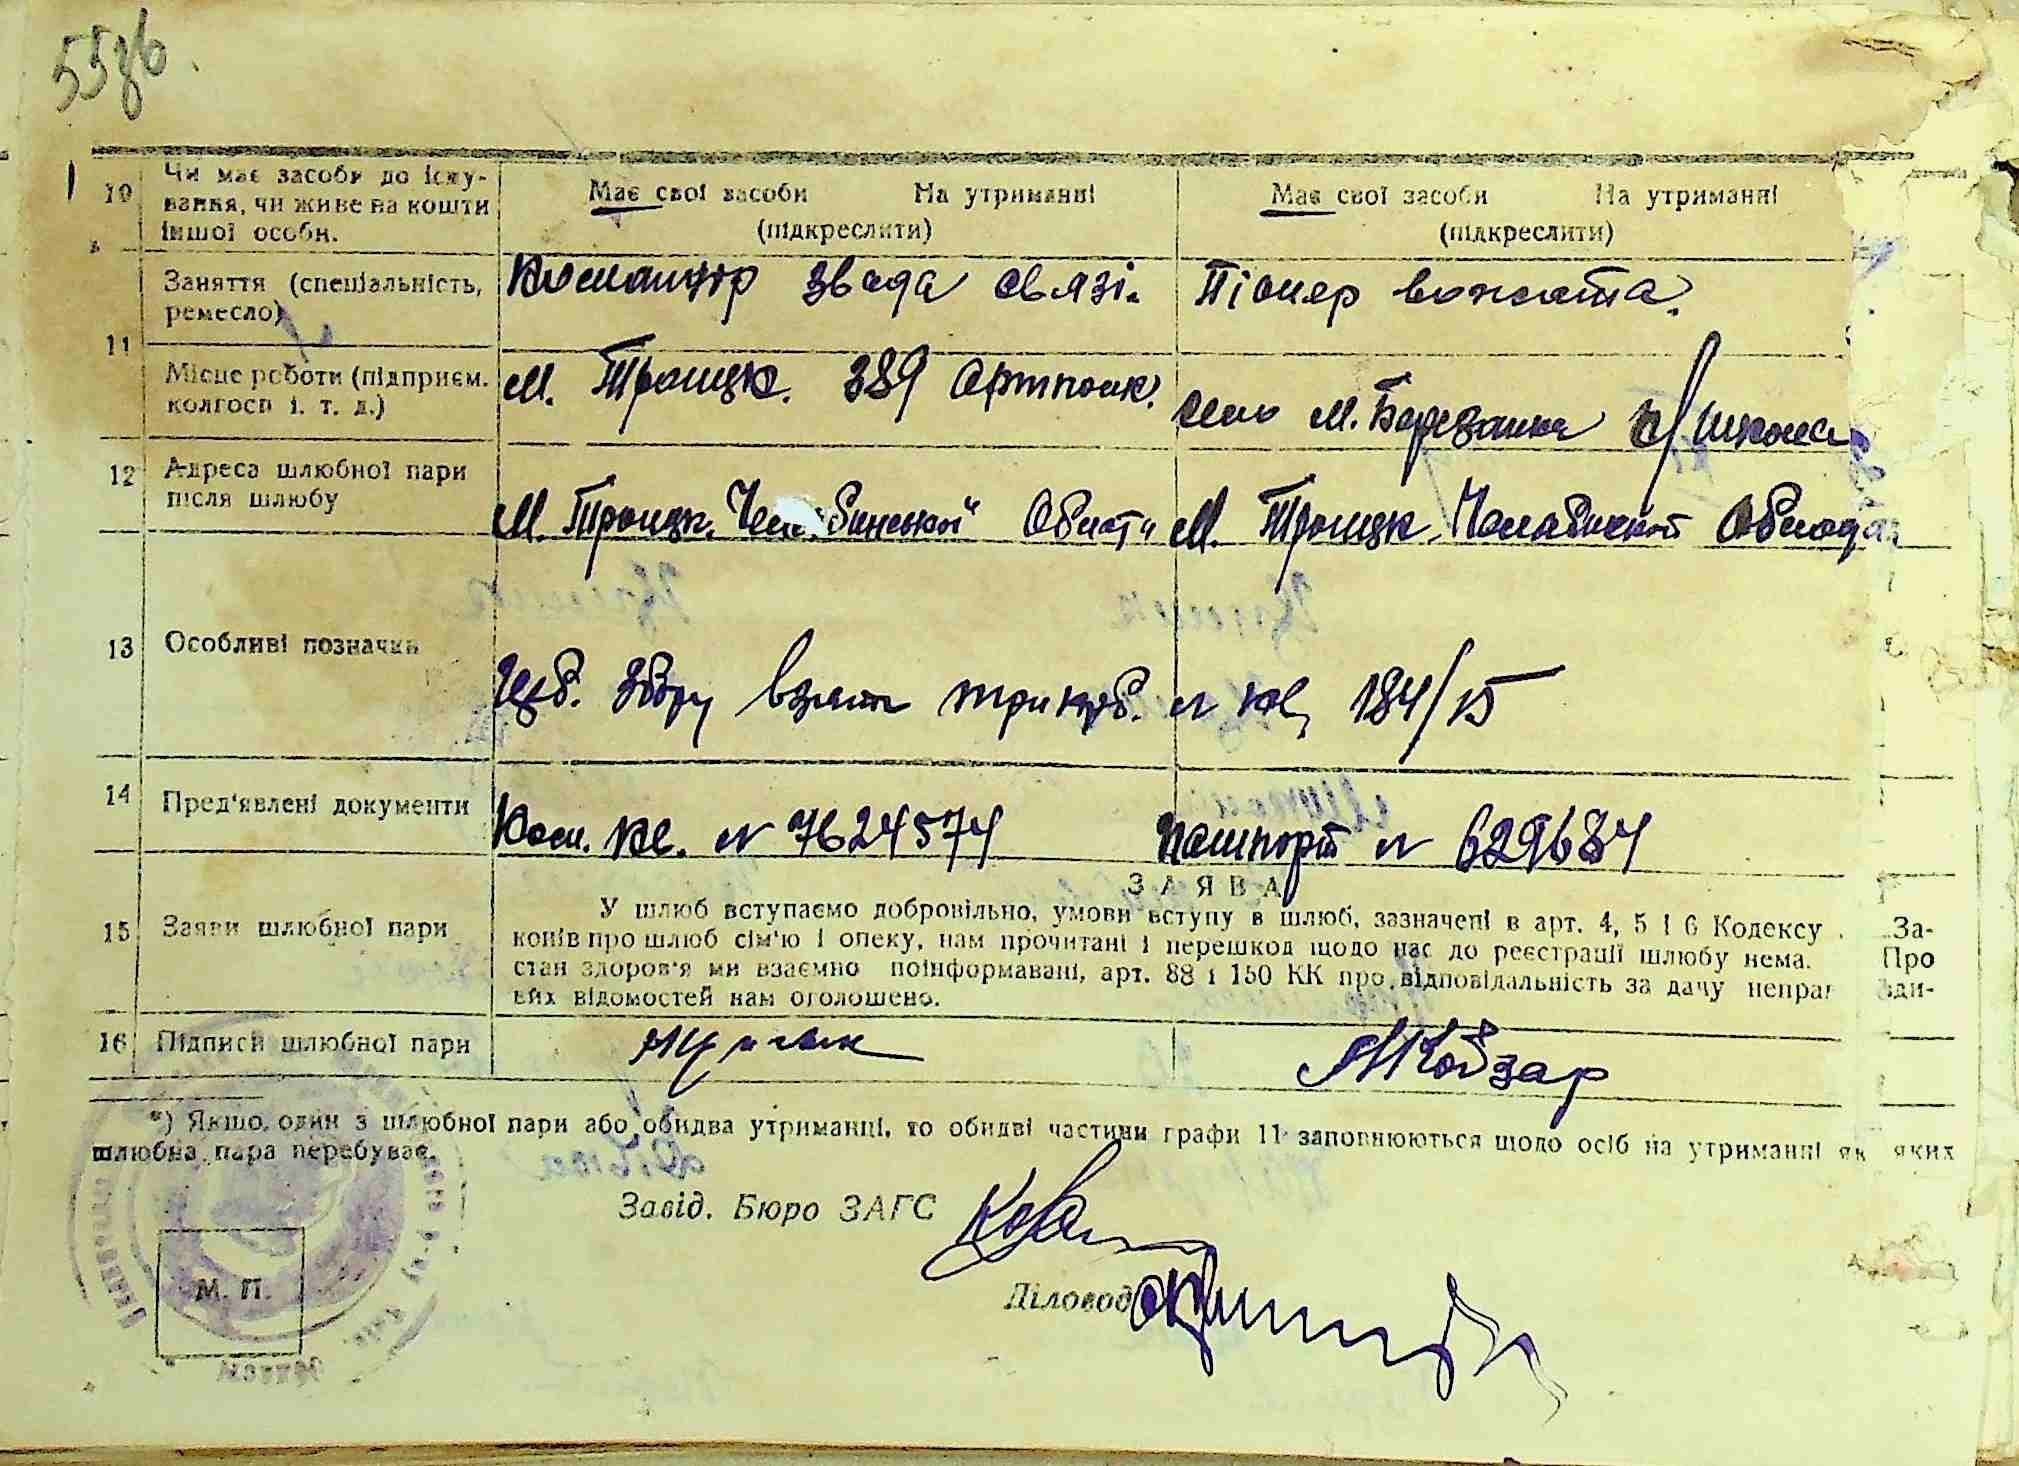 55зв
10 Чи має засоби до існу-
вання, чи живе на кошти
іншої особи.
Має свої засоби На утриманні
(підкреслити)
Має свої засоби На утриманні
(підкреслити)
11 Заняття (спеціальність,
ремесло)
Командір звода связі.
Піонер вожата.
Місце роботи (підприєм.
колгосп і. т. д.)
М. Троицк. 389 Артполк.
село М. Березанка н/ школа
12 Адреса шлюбної пари
після шлюбу
М. Троицк. Челябинської Області
М. Троицк. Челябинской Области
13 Особливі позначки
збору взято три крб. N кв, 184/15
14 Пред'явлені документи
Ком. кв. N 7624574
Пашпорт N 629684
15 Заяви шлюбної пари
ЗАЯВА
У шлюб вступаємо добровільно, умови вступу в шлюб, зазначені в арт. 4, 5 і 6 Кодексу За-
конів про шлюб сім'ю і опеку, нам прочитані і перешкод щодо нас до реєстрації шлюбу нема. Про
стан здоров'я ми взаємно поінформавані, арт. 88 і 150 КК про відповідальність за дачу неправди-
вих відомостей нам оголошено.
16 Підписи шлюбної пари
Кобзар
*) Якщо, один з шлюбної пари або обидва утриманці, то обидві частини графи 11 заповнюються щодо осіб на утриманні яких
шлюбна пара перебуває.
Завід. Бюро ЗАГС
Діловод
М. П.